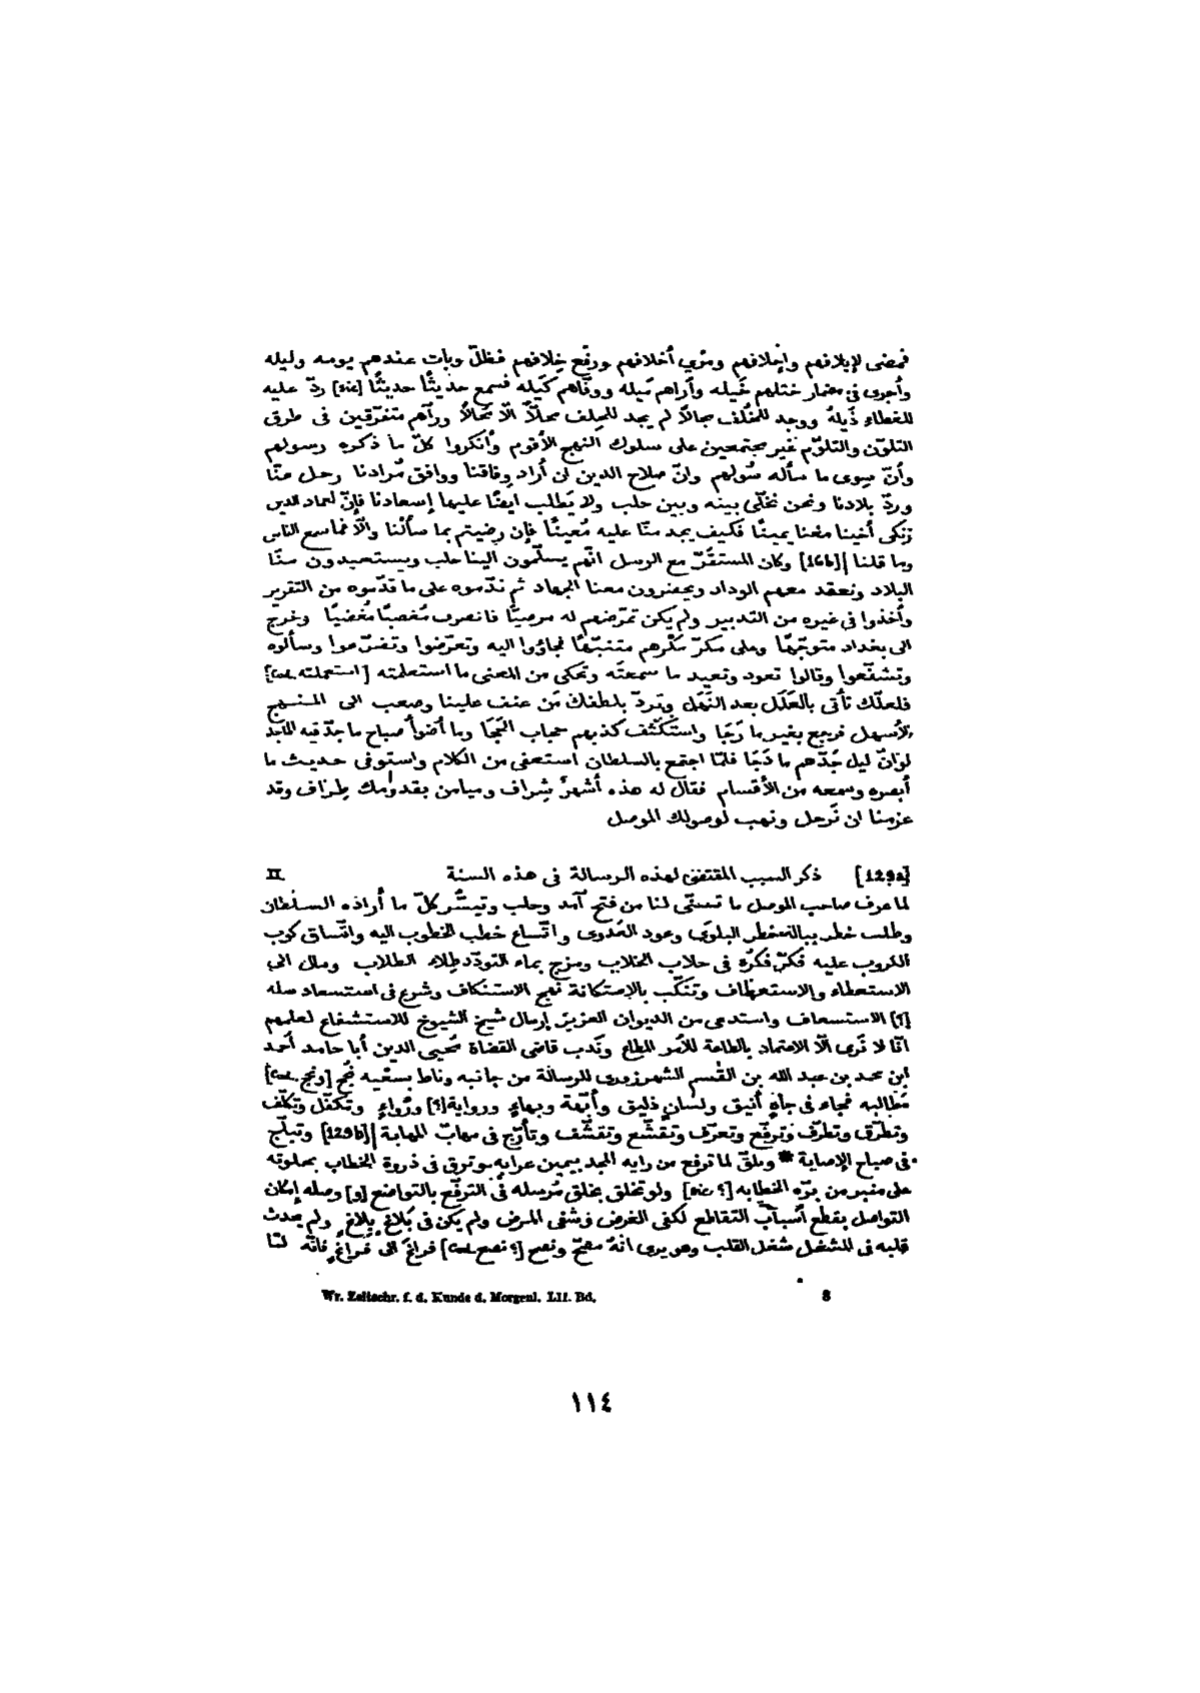 فمضى لإيلافهم وإخلافهم ومَرْي أخلافهم ورفع خلافهم فظلّ وبات عندهم يومه وليله
وأجرى فى مضمار ختلهم خَيله وأراهم مَيله ووفّاهم كَيله فسمع حديثًا حديثًا [sic] ردّ عليه
للغطاء ذَيلهُ ووجد للمُلِف مجالاً لم يجد للمحلف محلاًّ الّا مُحَالاً ورآهم متفرّقين فى طرق
التلوّن والتلوّم غير مجتمعين على سلوك النهج الأقوم وأنكروا كلّ ما ذكره رسولهم
وأنّ سِوى ما سأله سُولهم وانّ صلاح الدين ان أراد وِفاقنا ووافق مُرادنا رحل عنّا
وردّ بلادنا ونحن نخلّى بينه وبين حلب ولا يَطلب ايضًا عليها إسعادنا فإنّ لعماد الدين
زنكى أخينا معنا يمينًا فكيف يجد منّا عليه مُعينًا فإن رضيتم بما سألنا والّا فما سمع الناس
وما قلنا |[16b] وكان المستقَرّ مع الرسل انّهم يسلّمون الينا حلب ويستعيدون منّا
البلاد ونعقد معهم الوداد ويحضرون معنا الجهاد ثم ندّموه على ما قدّموه من التقرير
وأخذوا فى غيره من التدبير ولم يكن تمرّضهم له مرضيًّا فانصرف مُغصبًا مُغضِبًا وخرج
الى بغداد متوجّهًا وعلى مكرّ مكرهم متنبّهًا فجاؤوا اليه وتعرّضوا وتضرّعوا وسألوه
وتشفّعوا وقالوا تعود وتعيد ما سمعتَه وتحكى من المعنى ما استعلمته [استعملته Cod.]
فلعلّك تأتى بالعَلَل بعد النَهَل وتردّ بلطفك مَن عنف علينا وصعب الى المنهج
الأسهل فرجع بغير ما رَجَا واستكثف كذبهم حجاب الحِجَا وما أضوأ صباح ما جدّ فيه الماجد
لو انّ ليل جَدّهم ما دَجَا فلمّا اجتمع بالسلطان استعفى من الكلام واستوفى حديث ما
أبصره وسمعه من الأقسام فقال له هذه أشهرٌ شِراف وميامن بقدومك طِراف وقد
عزمنا ان نَرحل ونهب لوصولك الموصل
[129a] ذكر السبب المقتضى لهذه الرسالة فى هذه السنة II.
لما عرف صاحب الموصل ما تسنّى لنا من فتح آمد وحلب وتيسّر كلّ ما أراده السلطان
وطلب خطر بباله خطر البلوى وعود العَدْوى واتّساع خطب الخطوب اليه واتّساق كرب
الكروب عليه فكرّ فكرُه فى حلاب الخلاب ومزج بماء التودّد طِلاء الطلاب ومال الى
الاستعطاء والاستعطاف وتنكّب بالاستكانة نهج الاستنكاف وشرع فى استسعاد صله
[؟] الاستسعاف واستدعى من الديوان العزيز إرسال شيخ الشيوخ للاستشفاع لعلمهم
انّا لا نَرى الّا الاعتماد بالطاعة للأمر المطاع ونَدب قاضى القضاة مُحيى الدين أبا حامد أحمد
ابن محمد بن عبد الله بن القٰسم الشهرزورى للرسالة من جانبه وناط بسَعْيه نُجْح [ونجح Cod.]
مَطالبه فجاء فى جاهٍ أنيق ولسان ذليق وأبّهة وبهاءٍ ورواية[؟] ورُواءٍ وتكفّل وتكلّف
وتطرّق وتطرّف وترفّع وتعرّف وتقشّع وتقشّف وتأرّج فى مهابّ المهابة |[129b] وتبلّج
فى صباح الإصابة * وتلقّ لما ترفع من رايه المجد بيمين عرابه وترقى فى ذروة الخطاب بحلوته
على منبر من برّه الخطابه [sic ؟] ولو تخلق بخلق مُرسله فى الترفّع بالتواضع [و] وصله إمكان
التواصل بقطع أسباب التقاطع لكفى الغرض وشفى المرض ولم يكن فى بَلاغٍ بِلاغٍ ولم يحدث
قلبه فى المشغل شغل القلب وهو يرى انهُ مصحّ ونصح [؟ نصح Cod.] فراغَ الى فَراغٍ فانّه لمّا
Wr. Zeitschr. f. d. Kunde d. Morgenl. LII. Bd. 8
١١٤